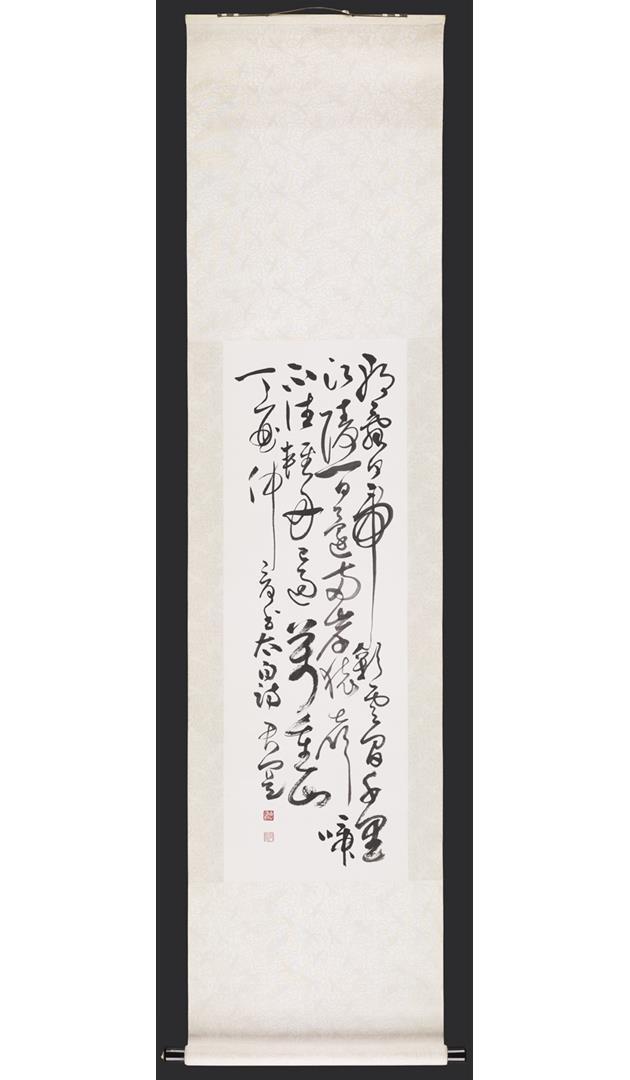 朝辭白帝彩雲間千里
江陵一日還兩岸猿聲啼
不住輕舟已過萬重山
丁酉仲夏書太白詩